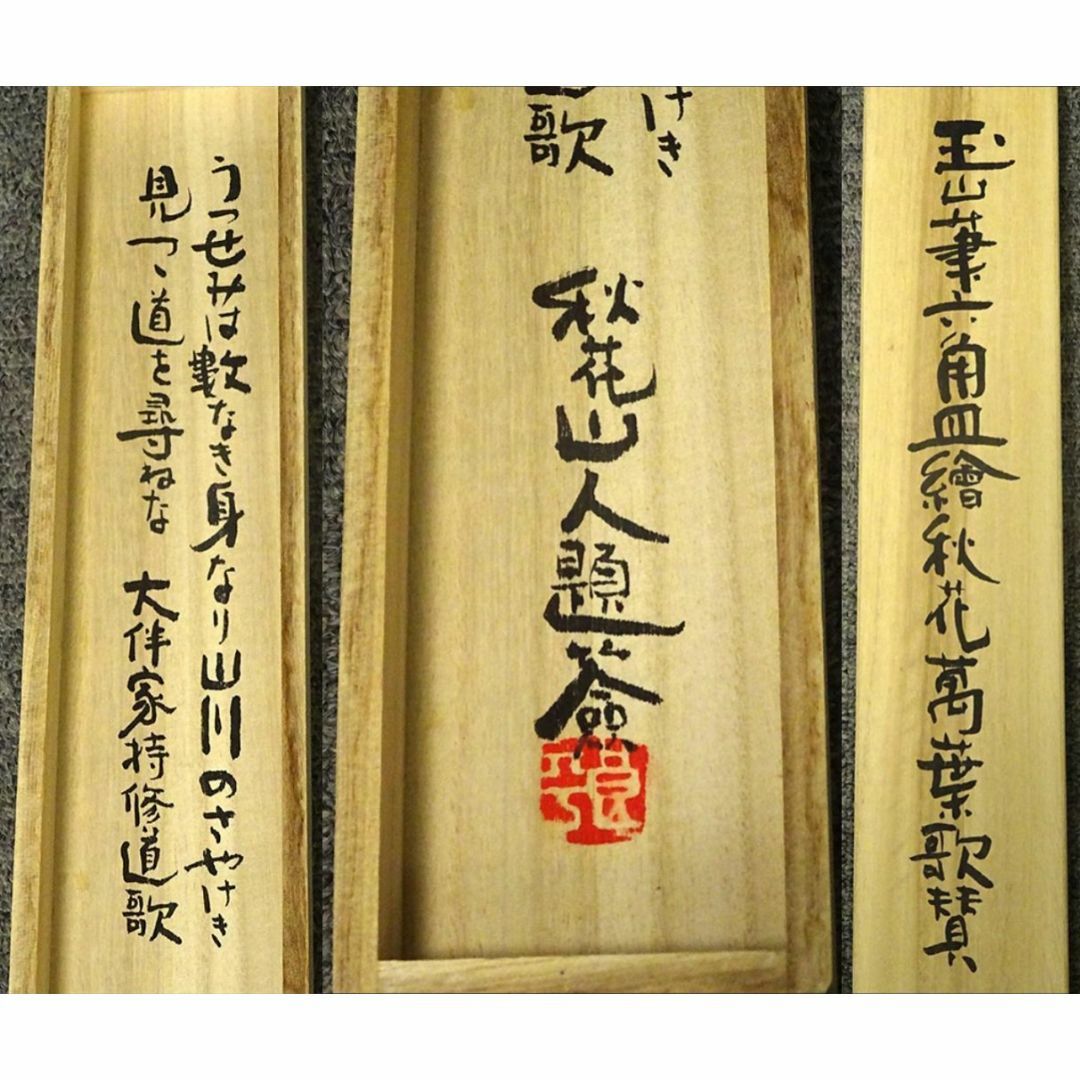 うつせみは數なき身なり山川のさやけき
見つゝ道を尋ねな 大伴家持修道歌
けき
歌
秋花山人題簽
玉山筆六角皿繪秋花萬葉歌賛